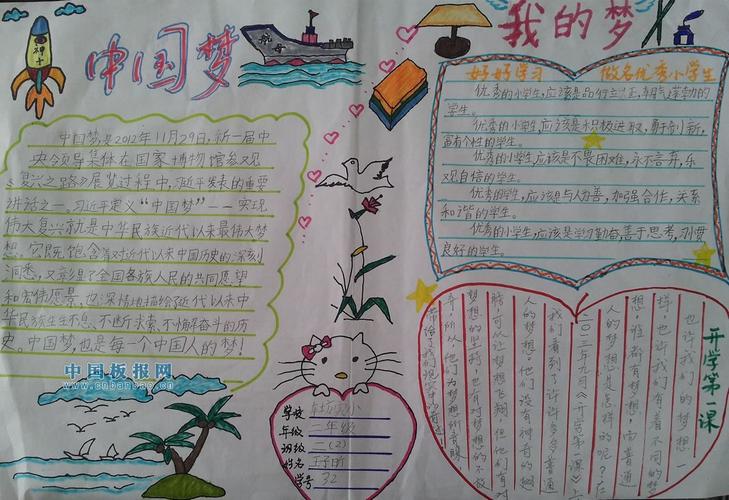 神十
中国梦
航母
我的梦
中国梦是2012年11月29日,新一届中
央领导集体在国家博物馆参观
《复兴之路》展览过程中,习近平发表的重要
讲话之一。习近平定义“中国梦”——实现
伟大复兴就是中华民族近代以来最伟大梦
想,它既饱含着对近代以来中国历史的深刻
洞悉,又彰显了全国各族人民的共同愿望
和宏伟愿景,也深情地描绘了近代以来中
华民族生生不息、不断求索、不懈奋斗的历
史。中国梦,也是每一个中国人的梦!
中国板报网
www.cnbanbao.cn
好好学习 做名优秀小学生
优秀的小学生,应该是品行立正,朝气蓬勃的
学生。
优秀的小学生,应该是积极进取,勇于创新,
富有个性的学生。
优秀的小学生,应该是不畏困难,永不言弃,乐
观自信的学生。
优秀的小学生,应该是与人为善,加强合作,关系
和谐的学生。
优秀的小学生,应该是学习勤奋善于思考,习惯
良好的学生。
开学第一课
也许我们的梦想一
样,也许我们有着不同的梦
想,谁都有梦想,而普通
人的梦想是怎样的呢?在
二〇一三年九月《开学第一课》上
我们看到了许许多多普通
人的梦想,他们没有神奇的翅
膀,可以让梦想飞翔,但他们有对
梦想的坚持,也有对梦想的不放
弃,所以,他们为梦想所自豪
学校
年级 二年级
班级 二(2)
姓名
学号 32